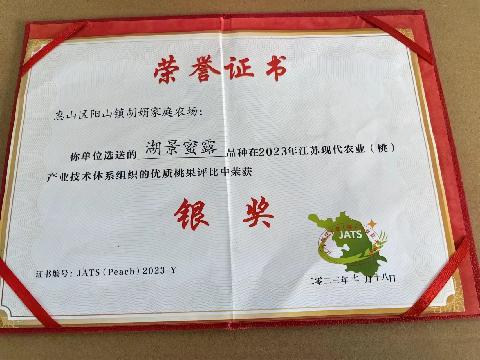 荣誉证书
惠山区阳山镇胡妍家庭农场：
你单位选送的 湖景蜜露 品种在2023年江苏现代农业（桃）
产业技术体系组织的优质桃果评比中荣获
银奖
JATS
证书编号：JATS（Peach）2023 Y
二〇二三年七月十八日